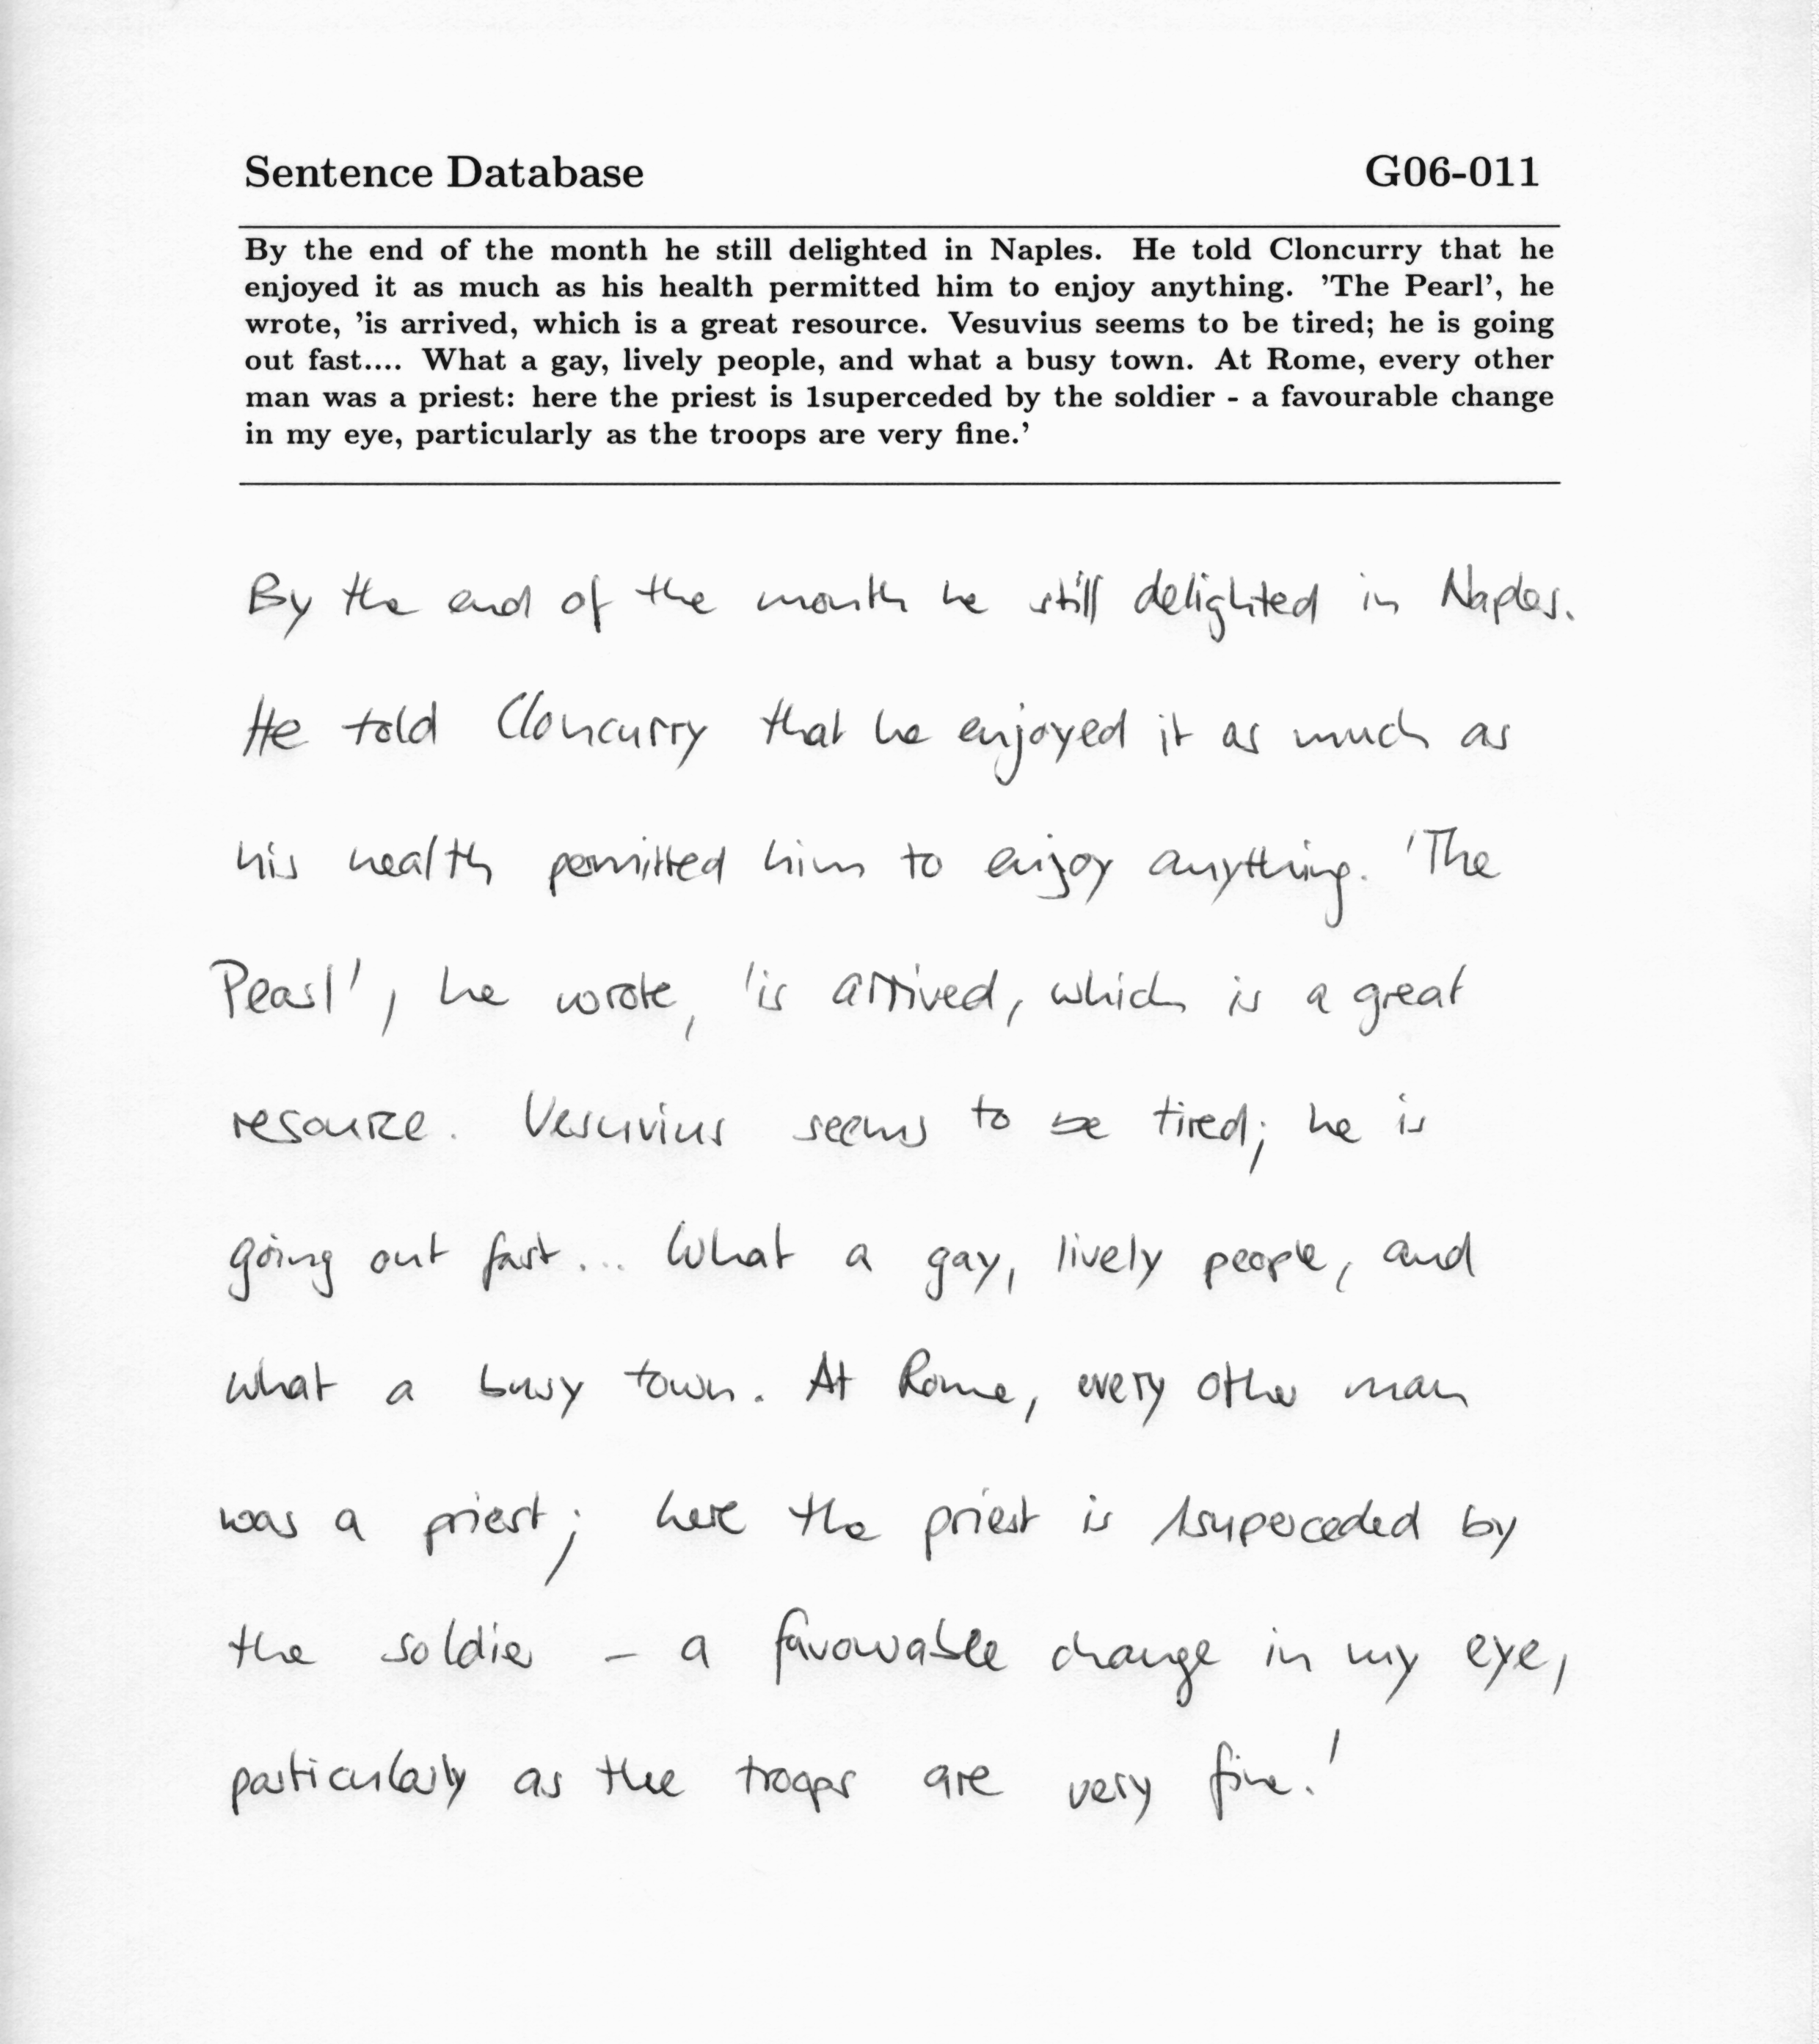 Sentence Database G06-011
By the end of the month he still delighted in Naples. He told Cloncurry that he
enjoyed it as much as his health permitted him to enjoy anything. 'The Pearl', he
wrote, 'is arrived, which is a great resource. Vesuvius seems to be tired; he is going
out fast.... What a gay, lively people, and what a busy town. At Rome, every other
man was a priest: here the priest is 1superceded by the soldier - a favourable change
in my eye, particularly as the troops are very fine.'
By the end of the month he still delighted in Naples.
He told Cloncurry that he enjoyed it as much as
his health permitted him to enjoy anything. 'The
Pearl', he wrote, 'is arrived, which is a great
resource. Vesuvius seems to be tired; he is
going out fast.... What a gay, lively people, and
what a busy town. At Rome, every other man
was a priest; here the priest is 1superceded by
the soldier - a favourable change in my eye,
particularly as the troops are very fine.'